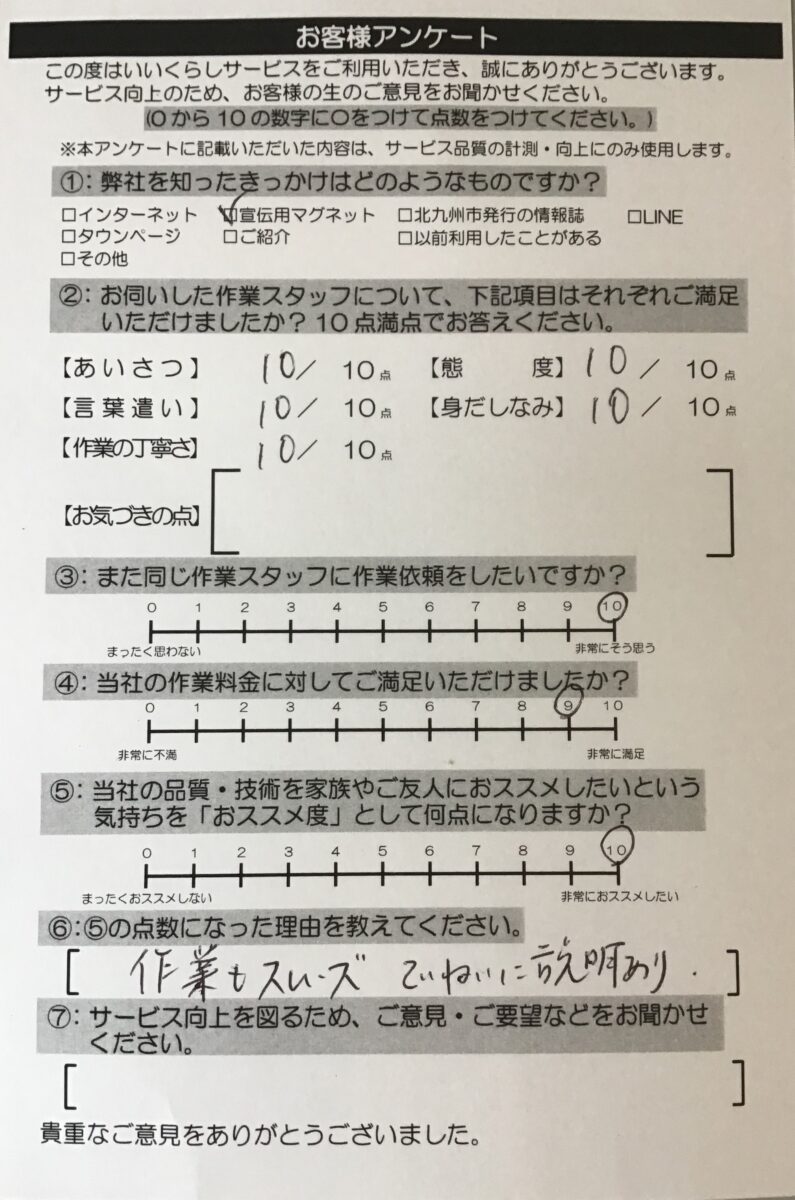 お客様アンケート
この度はいいくらしサービスをご利用いただき、誠にありがとうございます。
サービス向上のため、お客様の生のご意見をお聞かせください。
(0から10の数字に〇をつけて点数をつけてください。)
※本アンケートに記載いただいた内容は、サービス品質の計測・向上にのみ使用します。
①：弊社を知ったきっかけはどのようなものですか？
□インターネット ☑宣伝用マグネット □北九州市発行の情報誌 □LINE
□タウンページ □ご紹介 □以前利用したことがある
□その他
②：お伺いした作業スタッフについて、下記項目はそれぞれご満足
いただけましたか？10点満点でお答えください。
【あいさつ】 10／ 10点 【態度】 10／ 10点
【言葉遣い】 10／ 10点 【身だしなみ】 10／ 10点
【作業の丁寧さ】 10／ 10点
【お気づきの点】
③：また同じ作業スタッフに作業依頼をしたいですか？
0 1 2 3 4 5 6 7 8 9 10
まったく思わない 非常にそう思う
④：当社の作業料金に対してご満足いただけましたか？
0 1 2 3 4 5 6 7 8 9 10
非常に不満 非常に満足
⑤：当社の品質・技術を家族やご友人におススメしたいという
気持ちを「おススメ度」として何点になりますか？
0 1 2 3 4 5 6 7 8 9 10
まったくおススメしない 非常におススメしたい
⑥：⑤の点数になった理由を教えてください。
作業もスムーズ ていねいに説明あり.
⑦：サービス向上を図るため、ご意見・ご要望などをお聞かせ
ください。
貴重なご意見をありがとうございました。